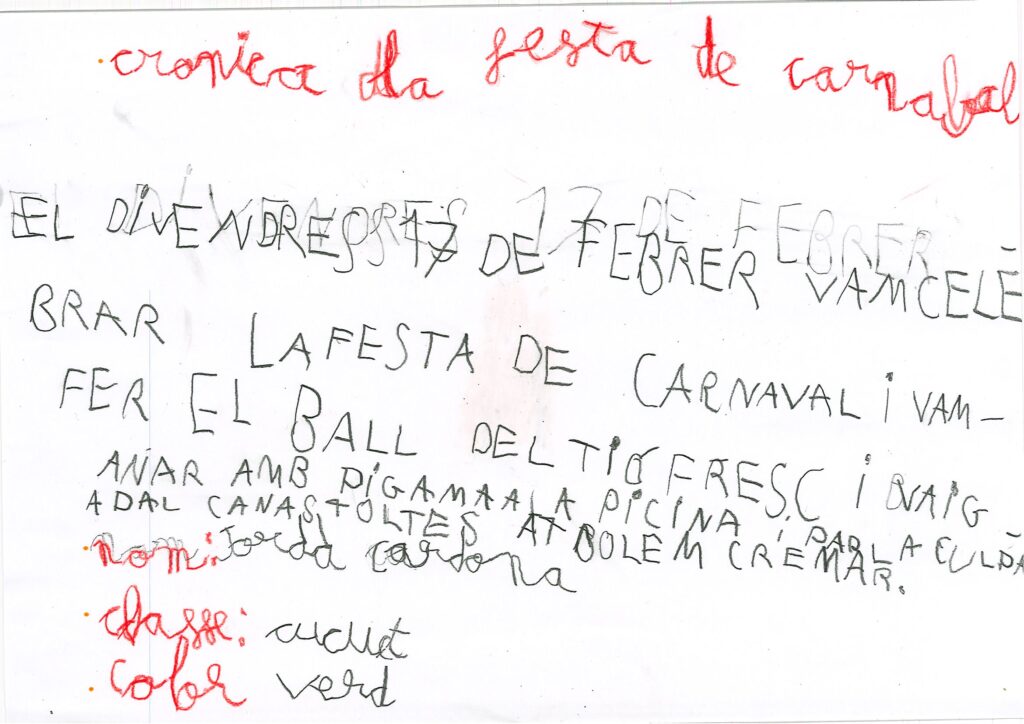 cronica dla festa de carnabal
EL DIVENDRES 17 DE FEBRER VAM CELE
BRAR LA FESTA DE CARNAVAL i VAM-
FER EL BALL DEL TIO FRESC i VAIG
ANAR AMB PIGAMA A LA PICINA i PARLA CULPA
ADAL CANASTOLTES AT BOLEM CREMAR.
nom: Jordà cardona
classe: cucut
color verd